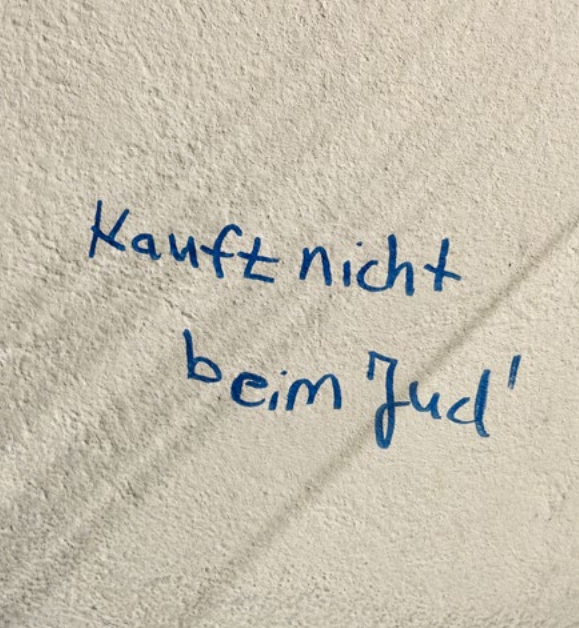 Kauft nicht
beim Jud'